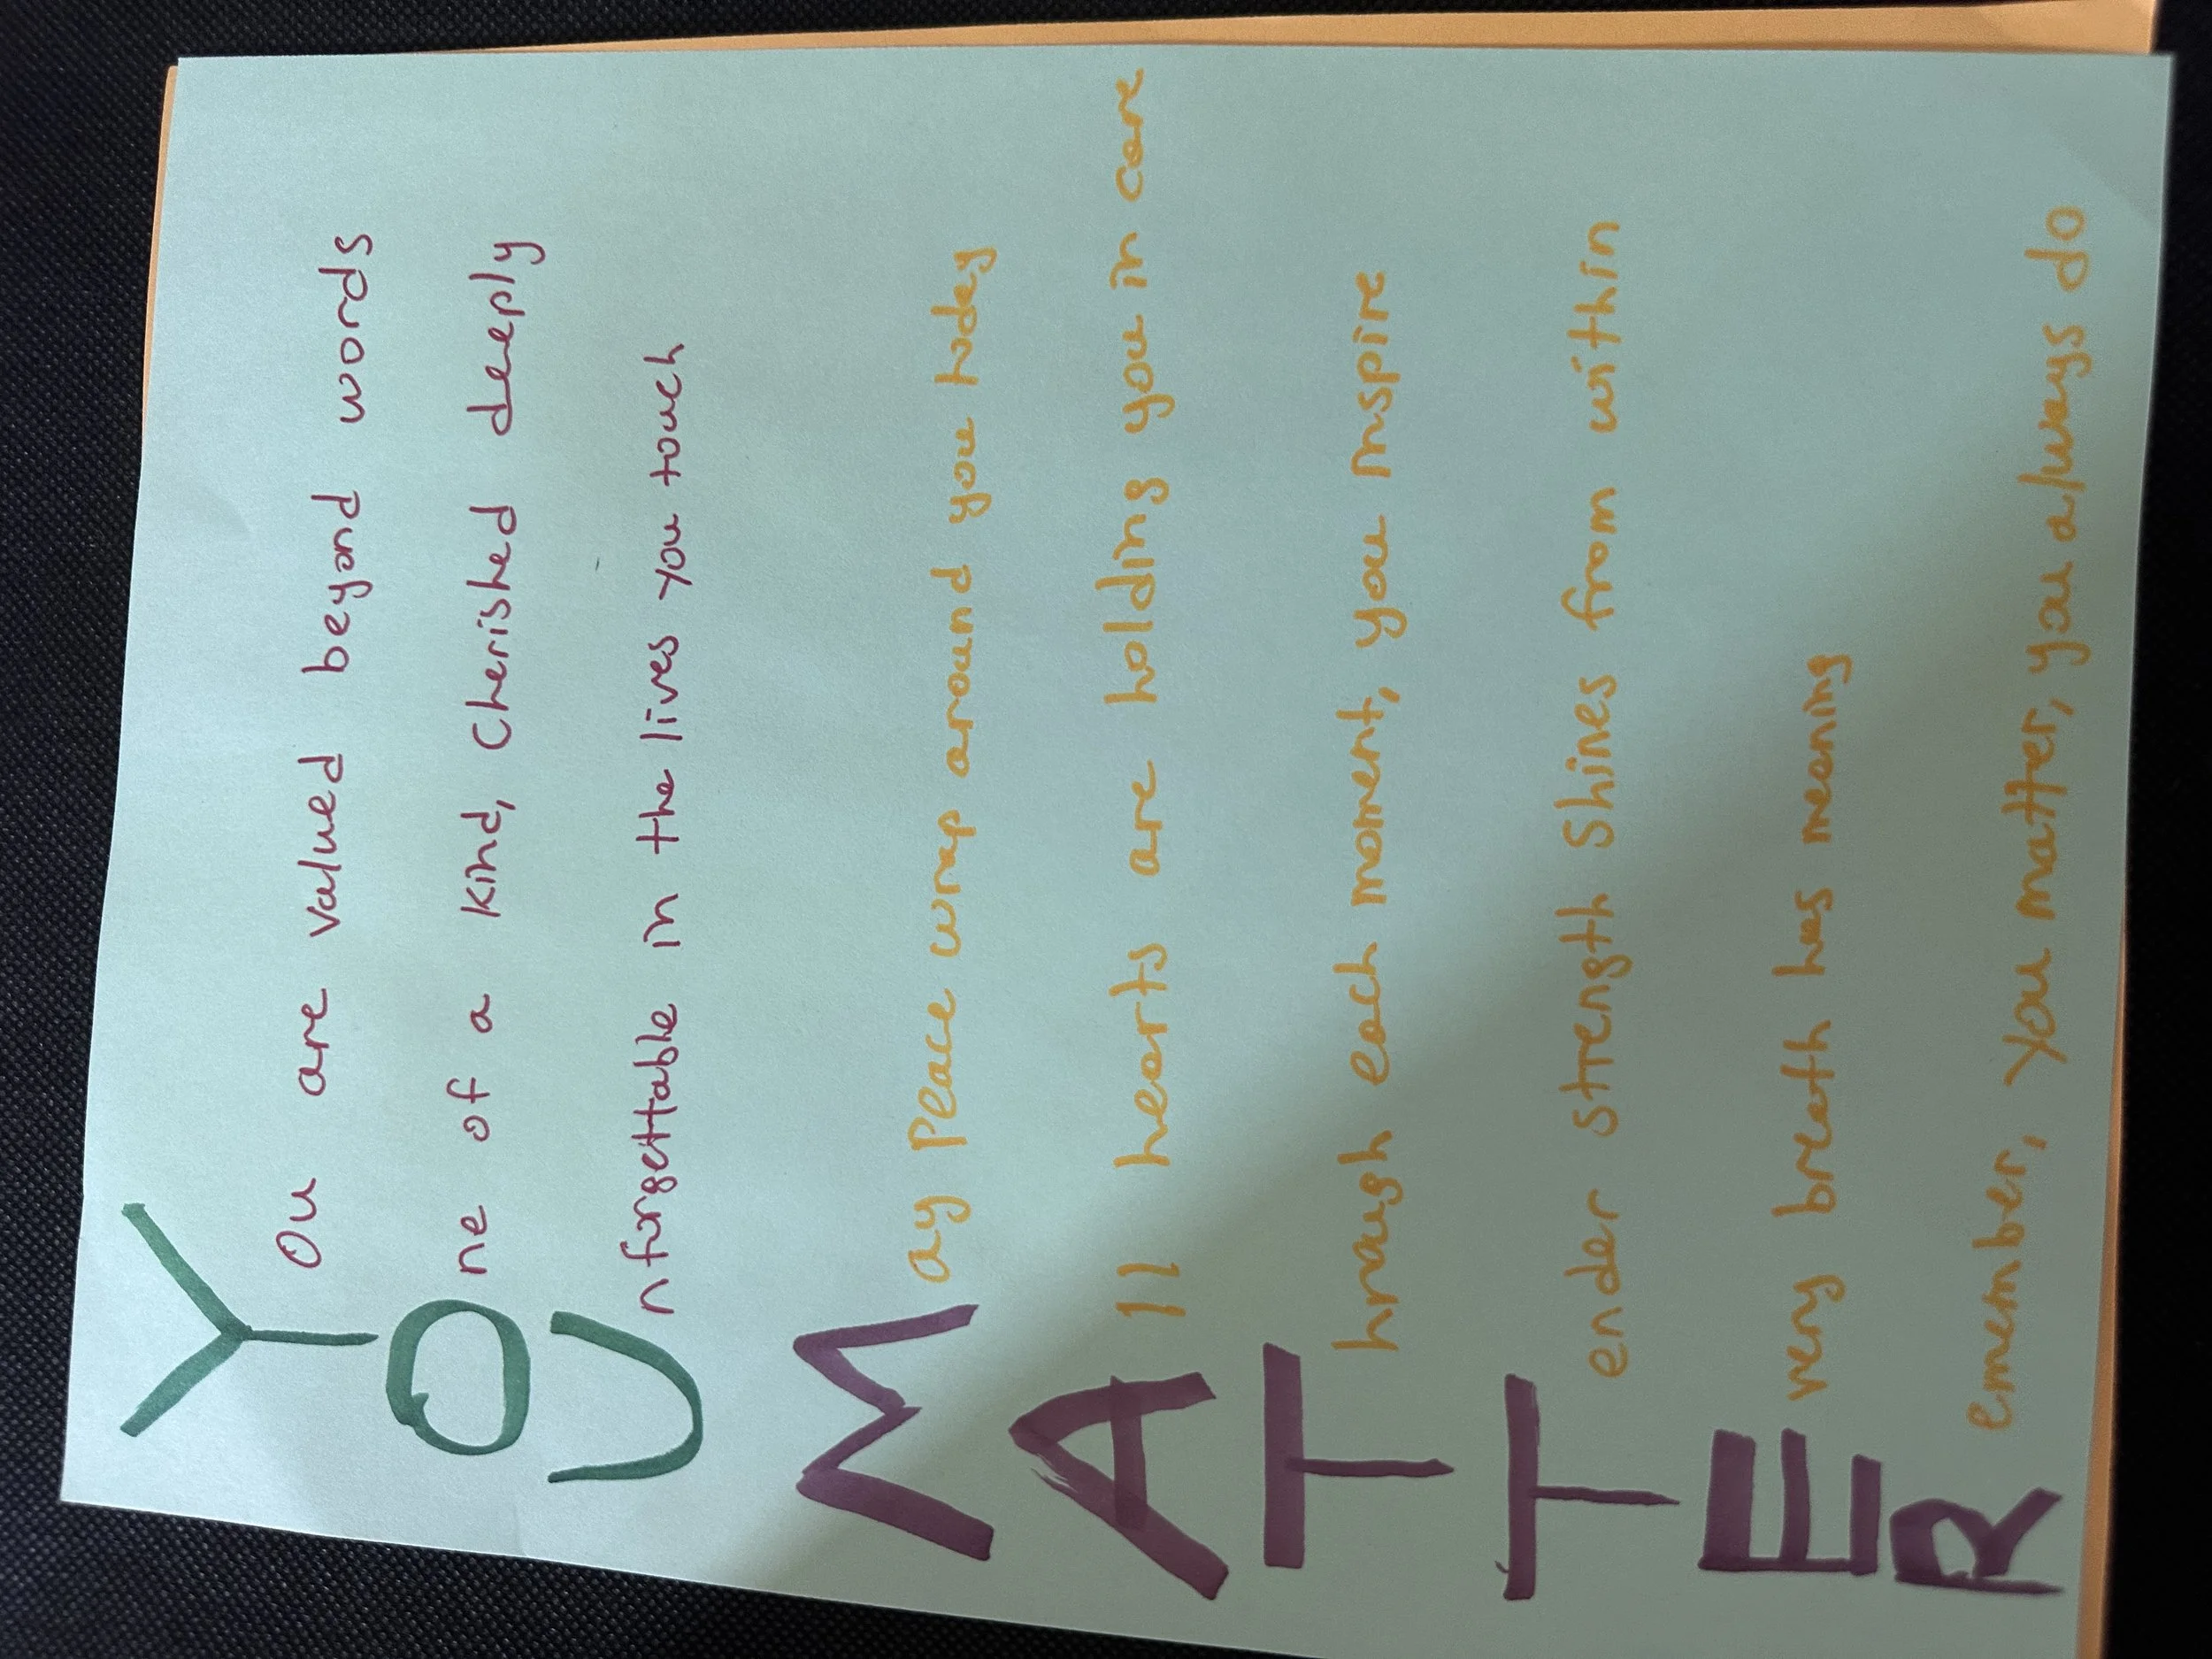 You are valued beyond words
One of a kind, cherished deeply
Unforgettable in the lives you touch
May Peace wrap around you today
All hearts are holding you in care
Through each moment, you inspire
Tender strength shines from within
Every breath has meaning
Remember, you matter, you always do